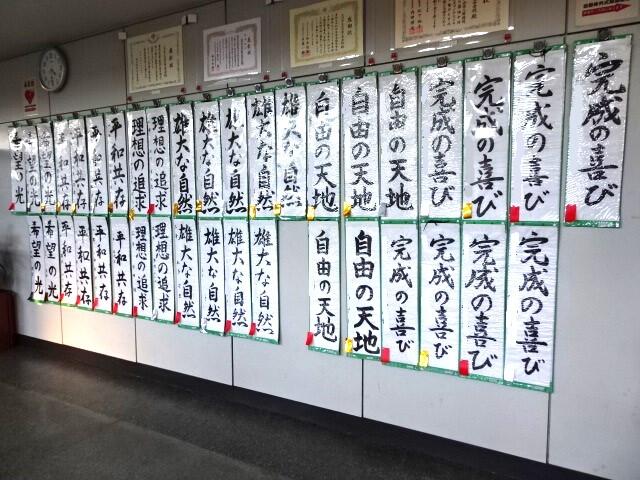 完成の喜び
完成の喜び
完成の喜び
完成の喜び
自由の天地
自由の天地
自由の天地
雄大な自然
雄大な自然
雄大な自然
雄大な自然
雄大な自然
理想の追求
理想の追求
平和共存
平和共存
平和共存
平和共存
希望の光
希望の光
希望の光
完成の喜び
完成の喜び
完成の喜び
完成の喜び
自由の天地
自由の天地
雄大な自然
雄大な自然
雄大な自然
雄大な自然
理想の追求
理想の追求
平和共存
平和共存
平和共存
平和共存
希望の光
希望の光